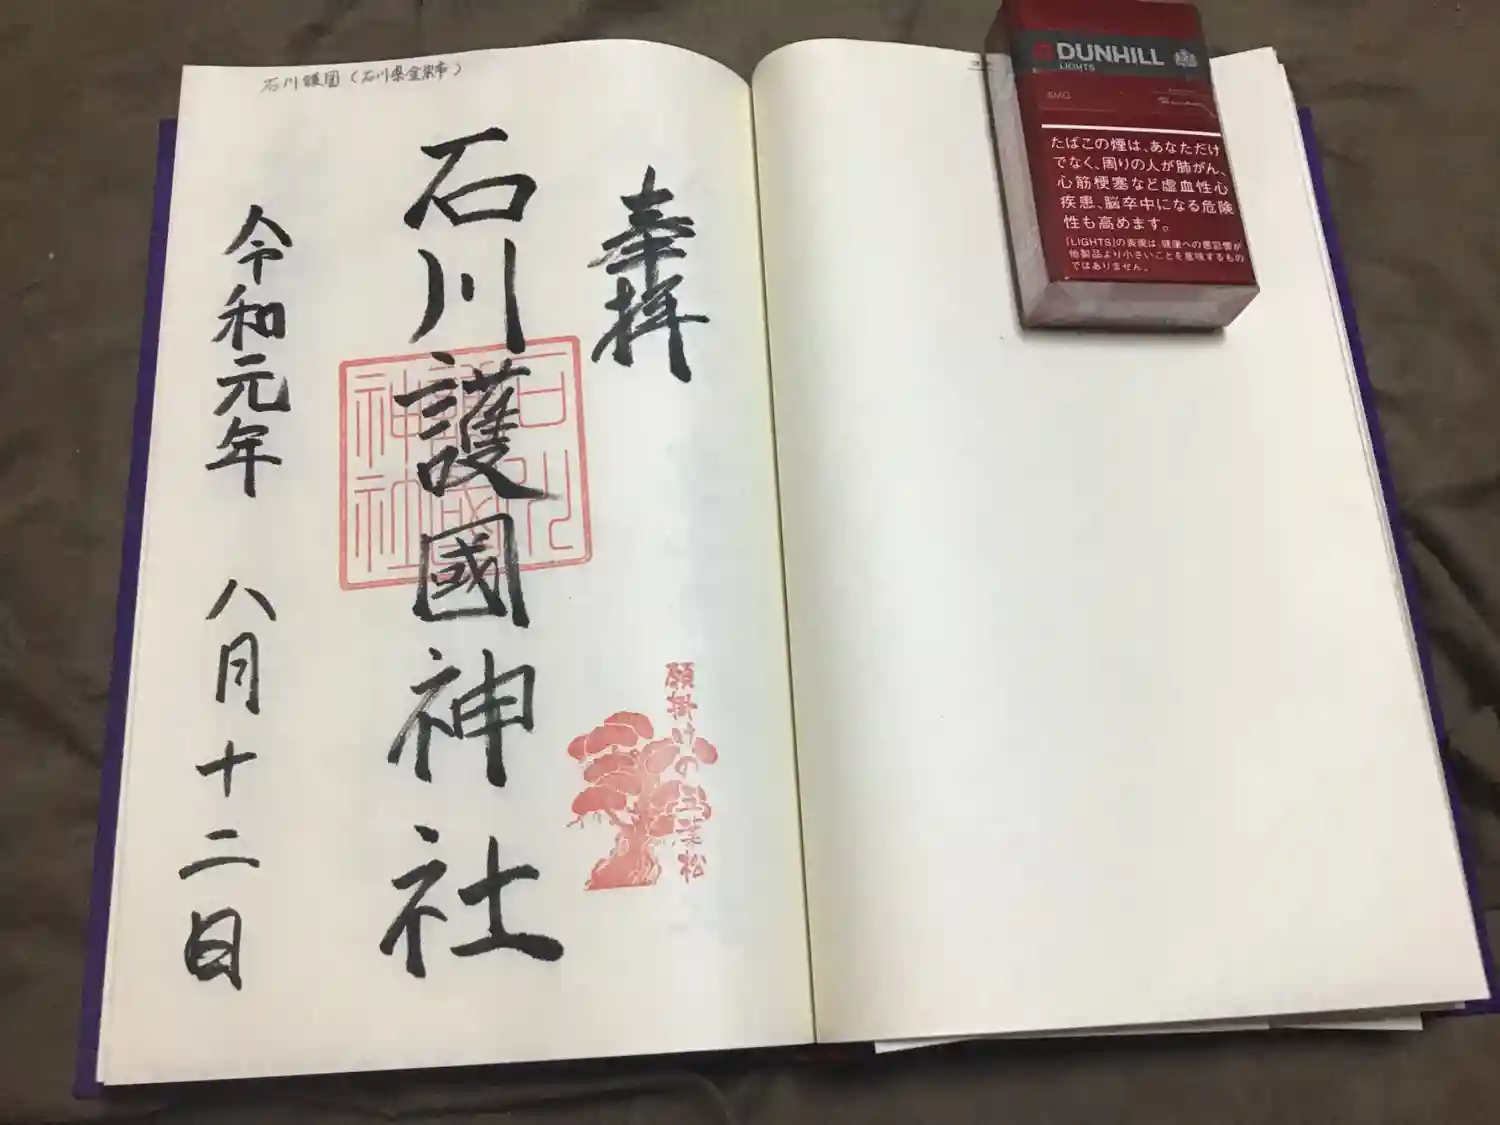 石川護国(石川県金沢市)
奉拝
石川護國神社
令和元年 八月十二日
石川
護國
神社
願掛けの三葉松
DUNHILL
LIGHTS
6MG
たばこの煙は、あなただけ
でなく、周りの人が肺がん、
心筋梗塞など虚血性心
疾患、脳卒中になる危険
性も高めます。
「LIGHTS」の表現は、健康への悪影響が
他製品より小さいことを意味するもの
ではありません。